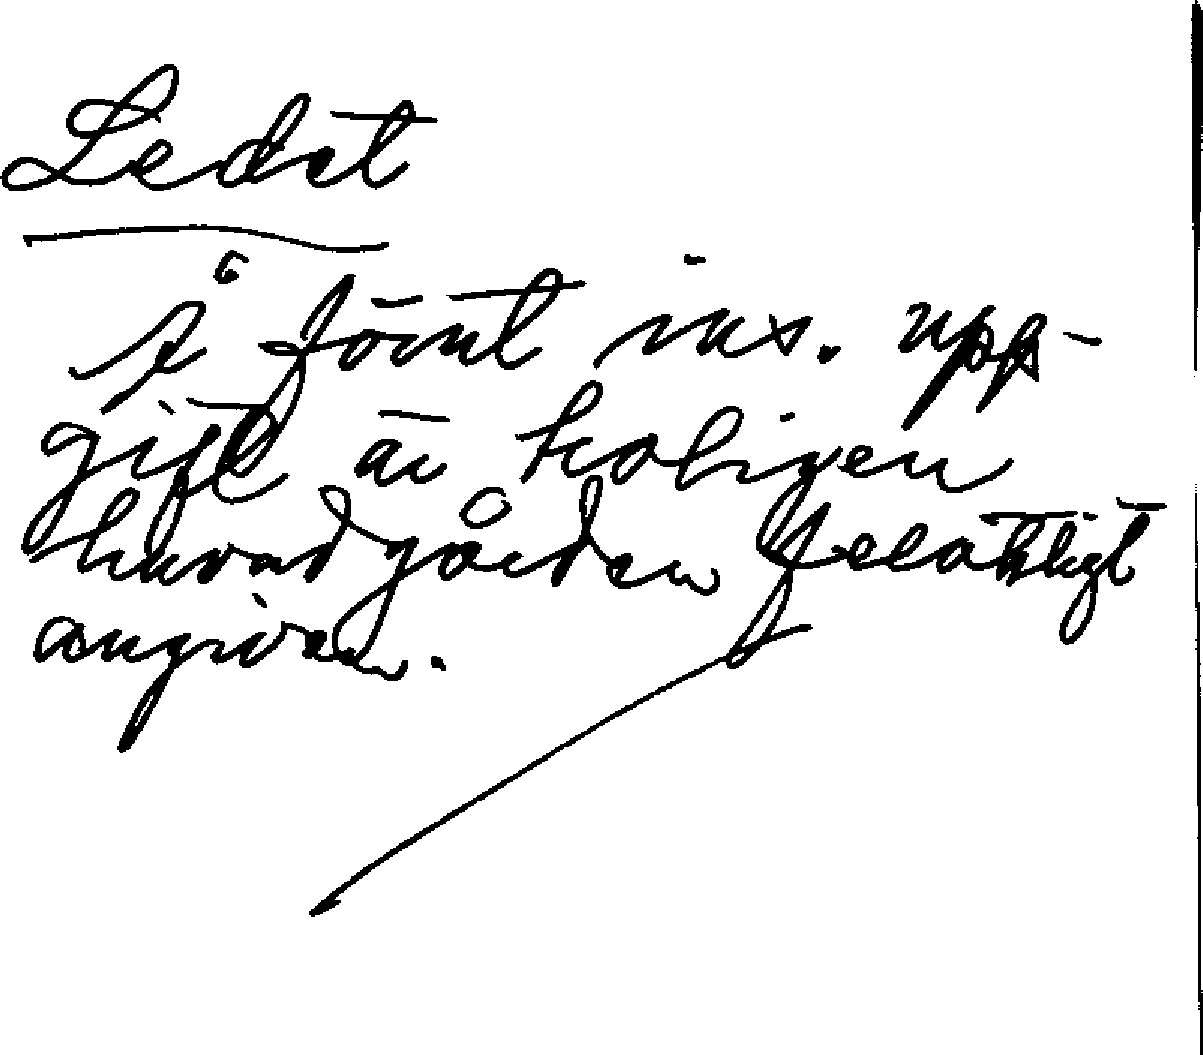 Ledet
Å förut ins. upp-
gift är troligen
huvudgården felaktigt
angiven.